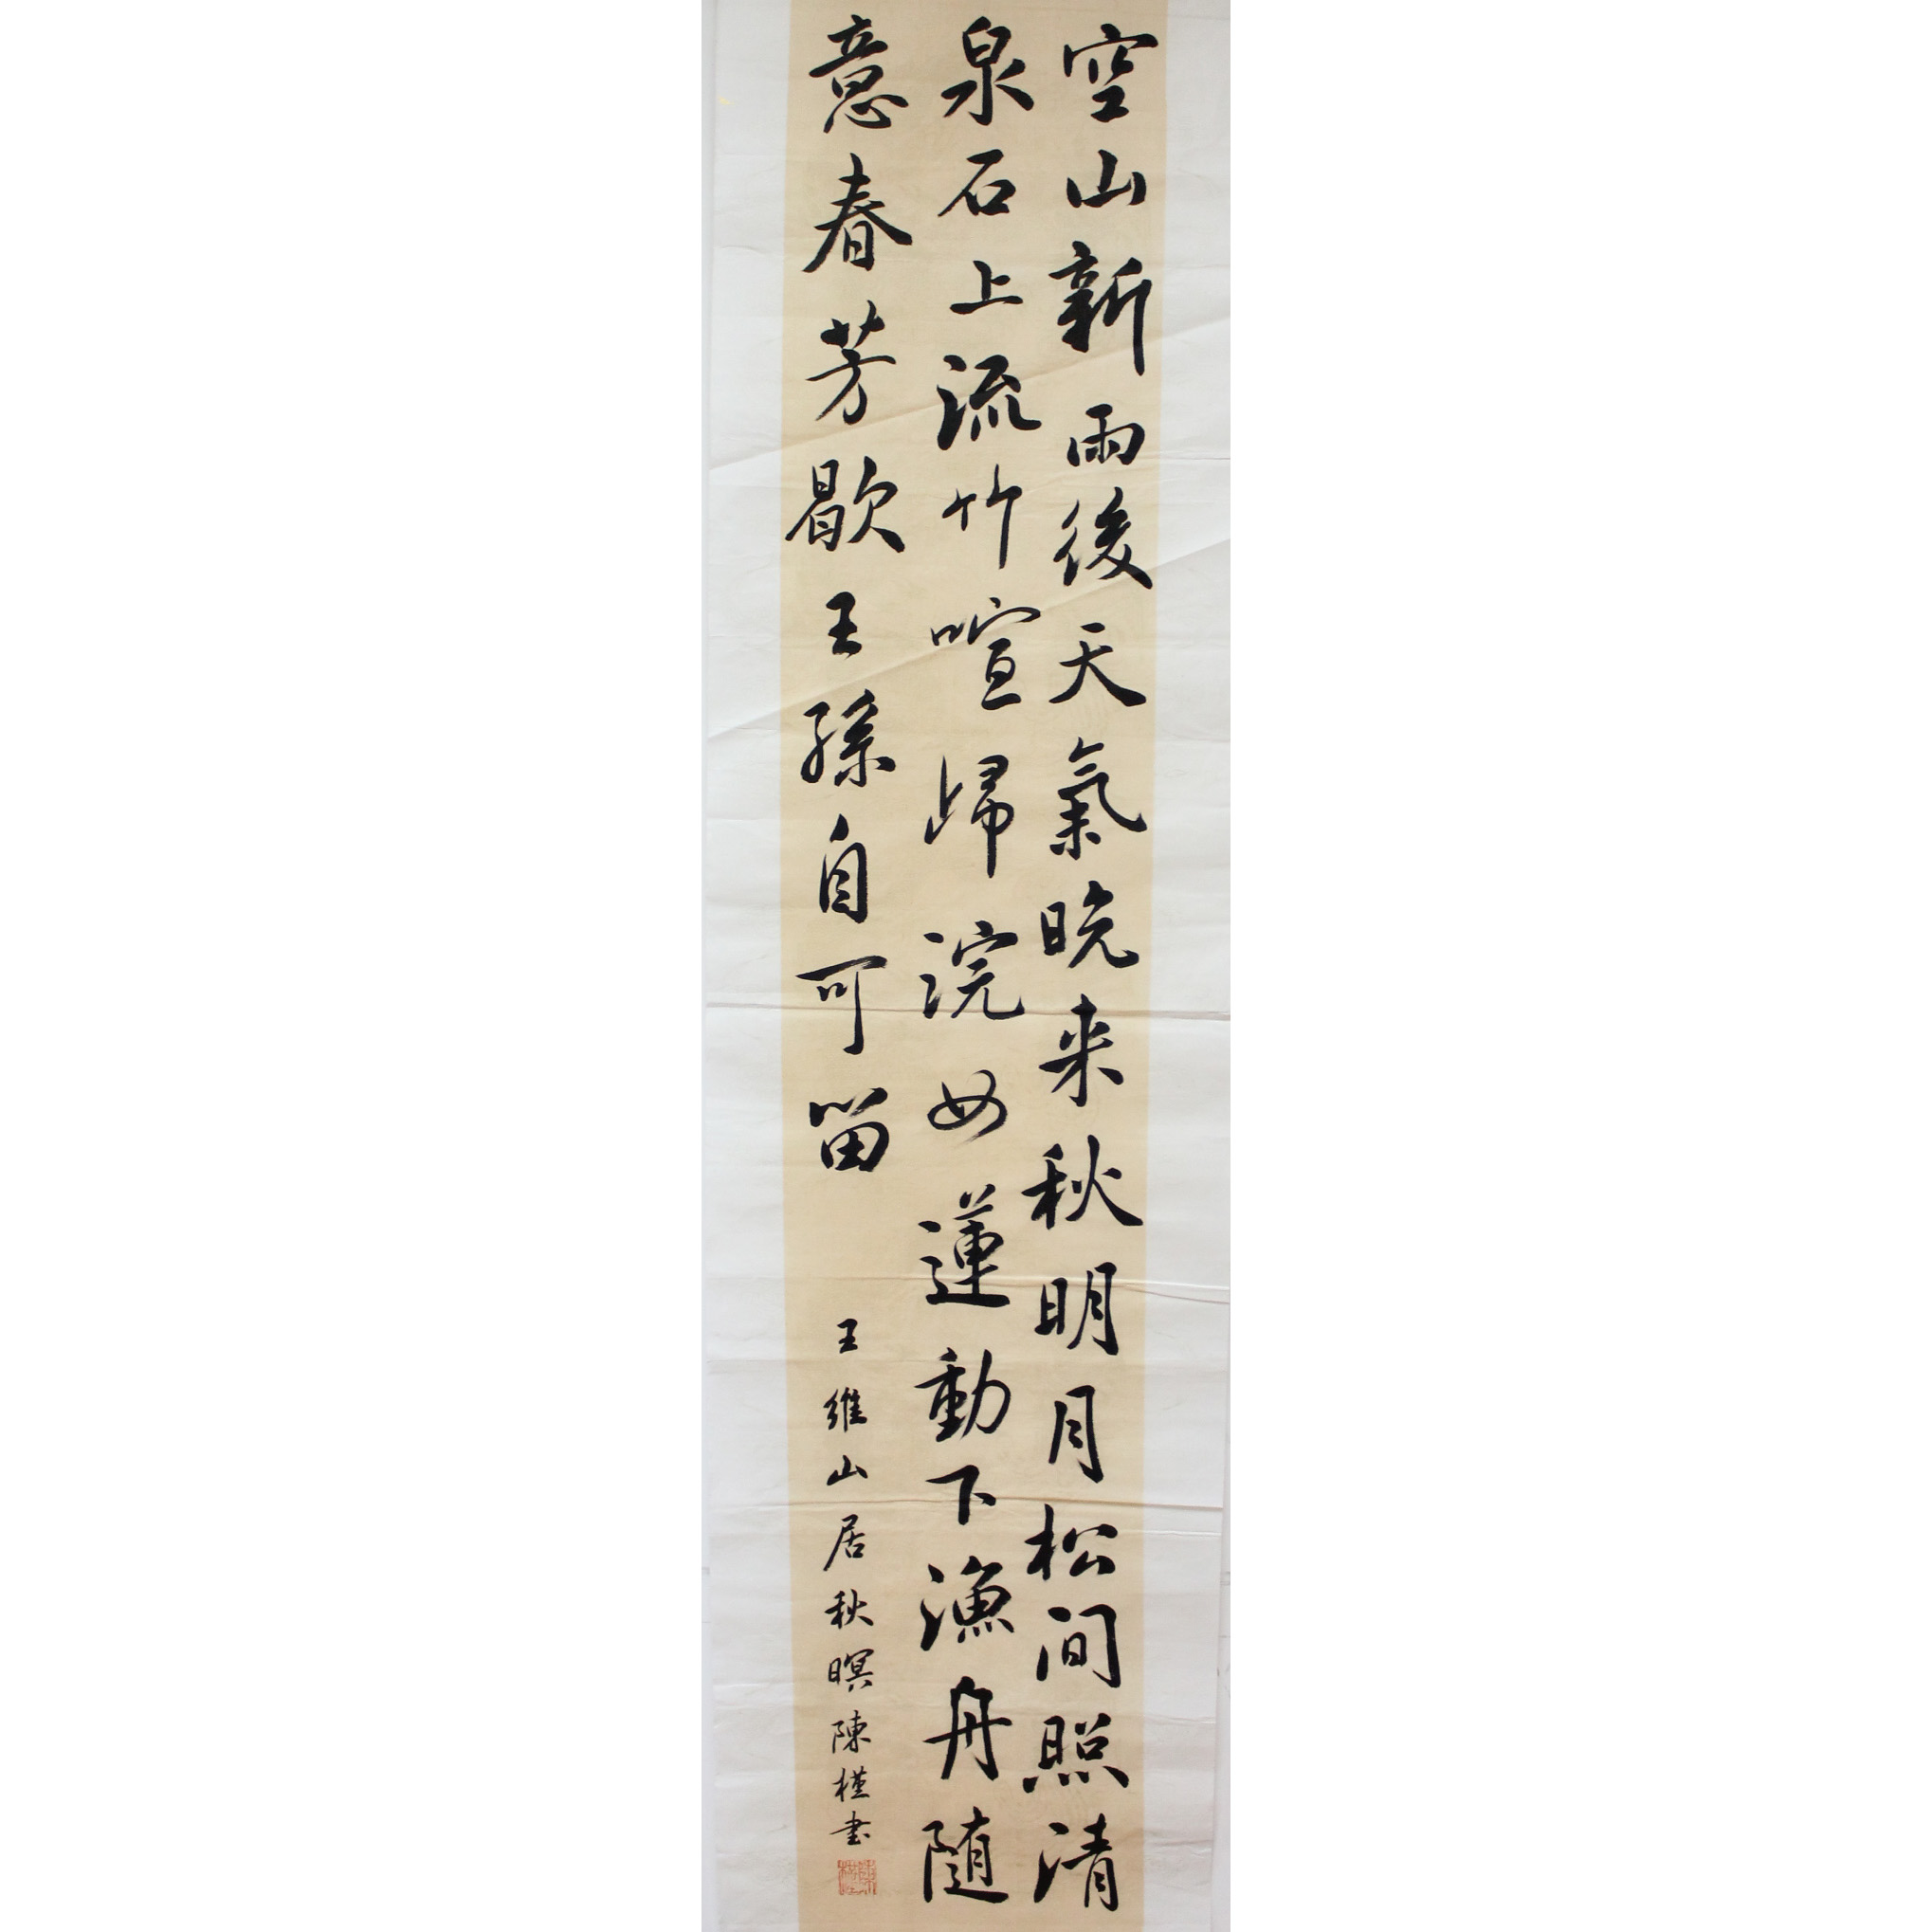 空山新雨後天氣晚来秋明月松间照清
泉石上流竹喧歸浣女蓮動下漁舟随
意春芳歇王孫自可留
王維山居秋暝陳槿书